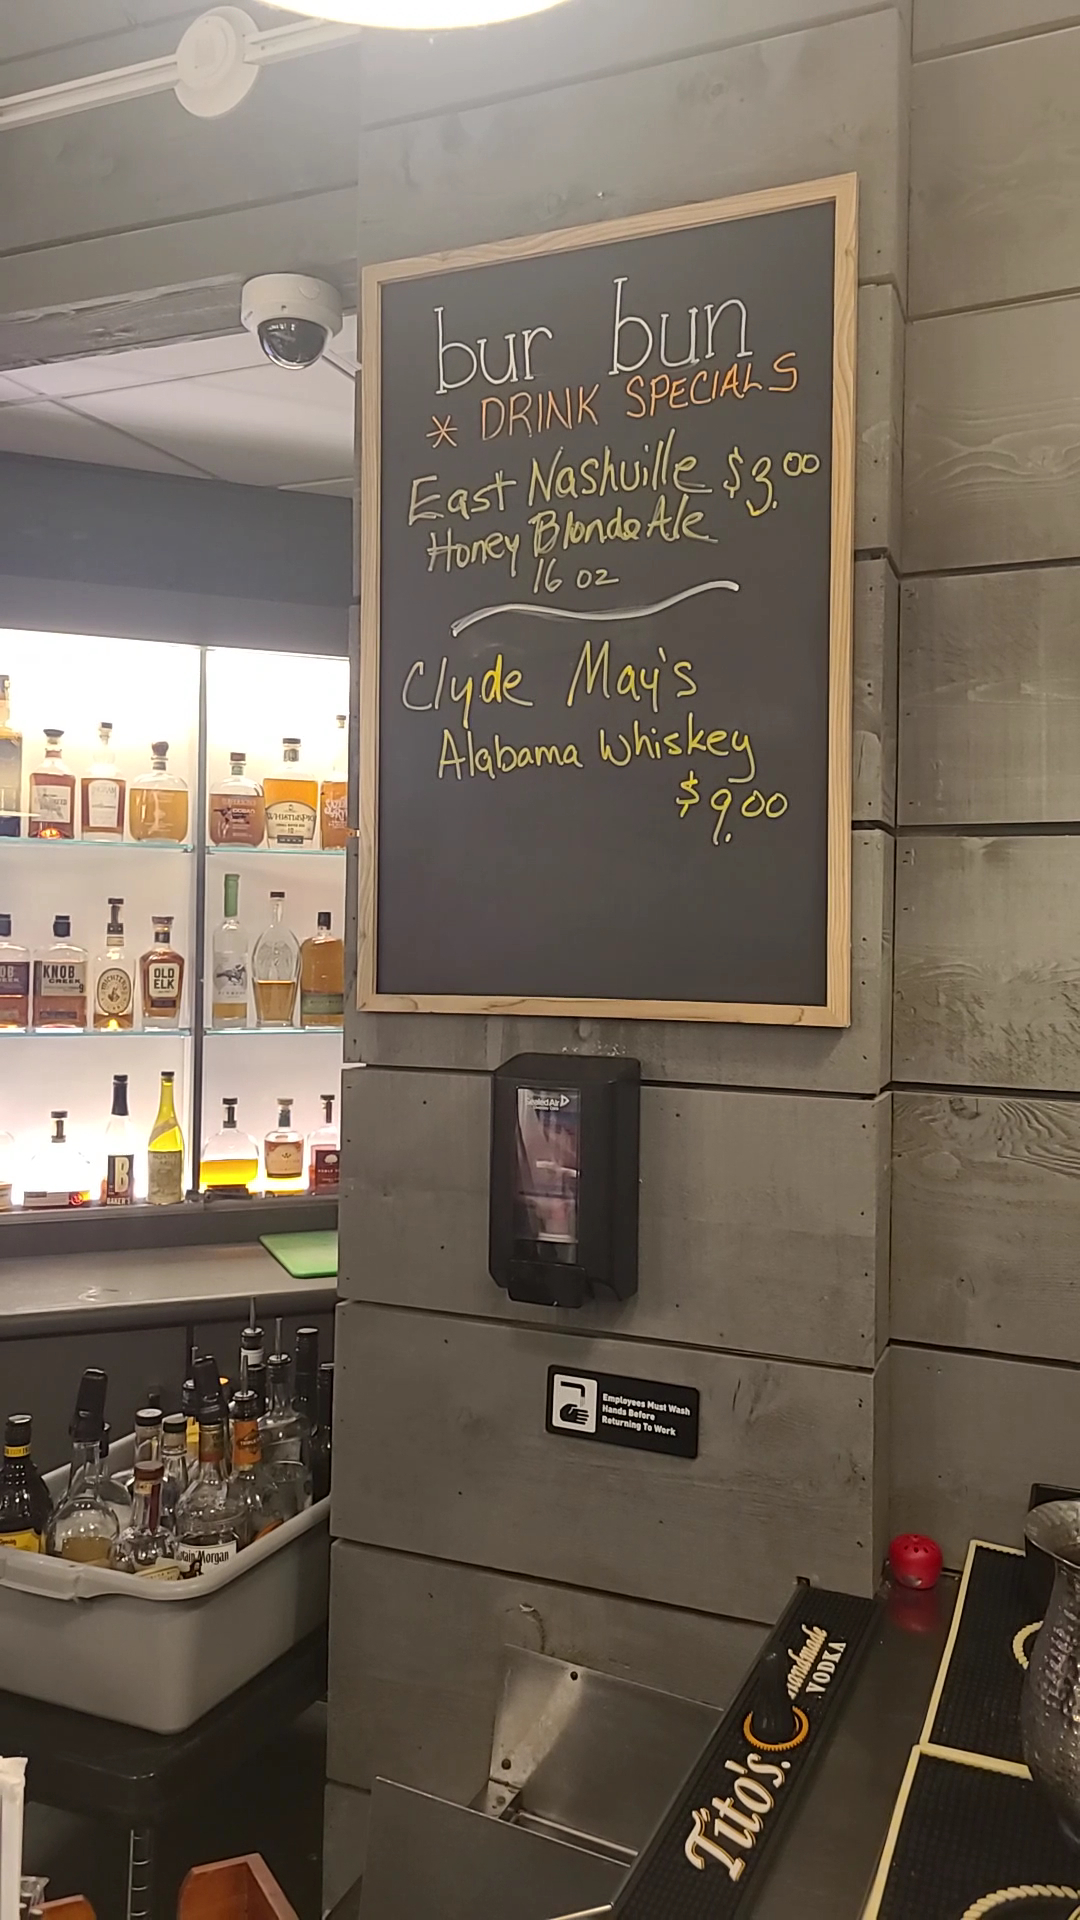 bur bun
* DRINK SPECIALS
East Nashville $3.00
Honey Blonde Ale
16 oz
Clyde May's
Alabama Whiskey
$9.00
WHISTLEPIG
KNOB
CREEK
9
OLD
ELK
B
BAKER'S
SealedAir
Employees Must Wash
Hands Before
Returning To Work
tain Morgan
Tito's.
handmade
VODKA